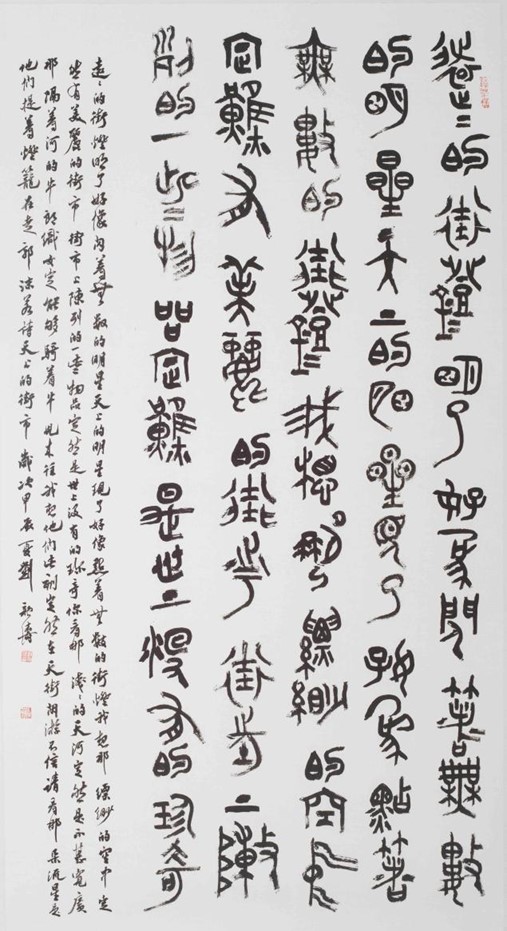 遠〻的街燈明了好象閃著無數
的明星天上的明星見了好象點著
無數的街燈我想那縹緲的空中
定然有美麗的街市街市上陳
列的一些物品定然是世上沒有的珍奇
遠〻的街燈明了好像閃着無數的明星天上的明星現了好像點着無數的街燈我想那縹緲的空中定
然有美麗的街市街市上陳列的一些物品定然是世上沒有的珍奇你看那淺〻的天河定然是不甚寬廣
那隔着河的牛郎織女定能夠騎着牛兒來往我想他們此刻定然在天街閒游不信請看那朵流星是
他們提着燈籠在走郭沫若詩天上的街市歲次甲辰夏劉